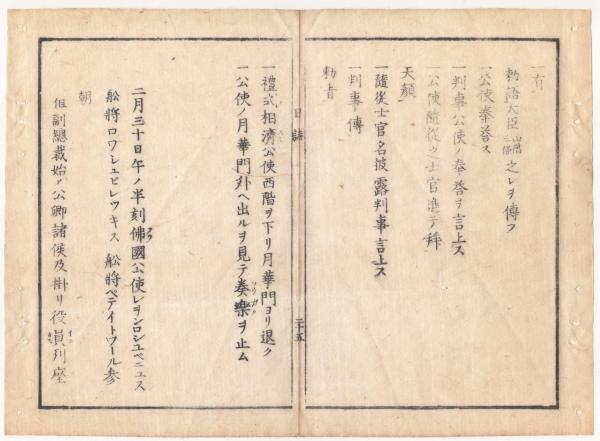 一有
勅語大臣山階三條之レヲ傳フ
一公使奉答ス
一判事公使ノ奉答ヲ言上ス
一公使隨從之士官進テ拜
天顔
一隨從士官名披露判事言上ス
一判事傳
勅旨
日誌
二十五
一禮式相濟公使西階ヲ下リ月華門ヨリ退ク
一公使ノ月華門外ヘ出ルヲ見テ奏樂ヲ止ム
二月三十日午ノ半刻佛國公使レヲンロシユペニユス
舩將ロワシユビレツキス 舩將ペテイトワール參
朝
但副總裁始メ公卿諸侯及掛リ役員列座